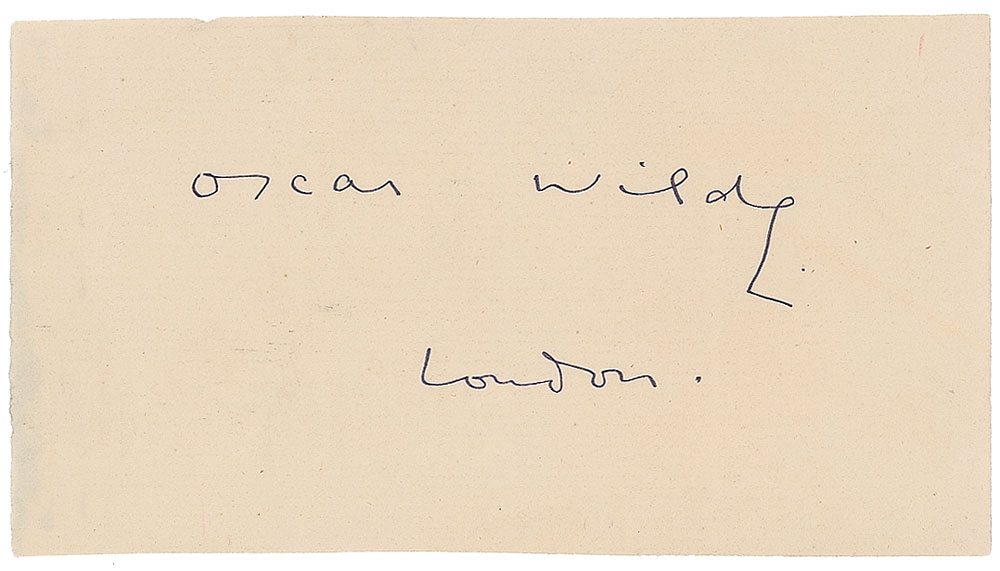 Oscar Wilde
London.